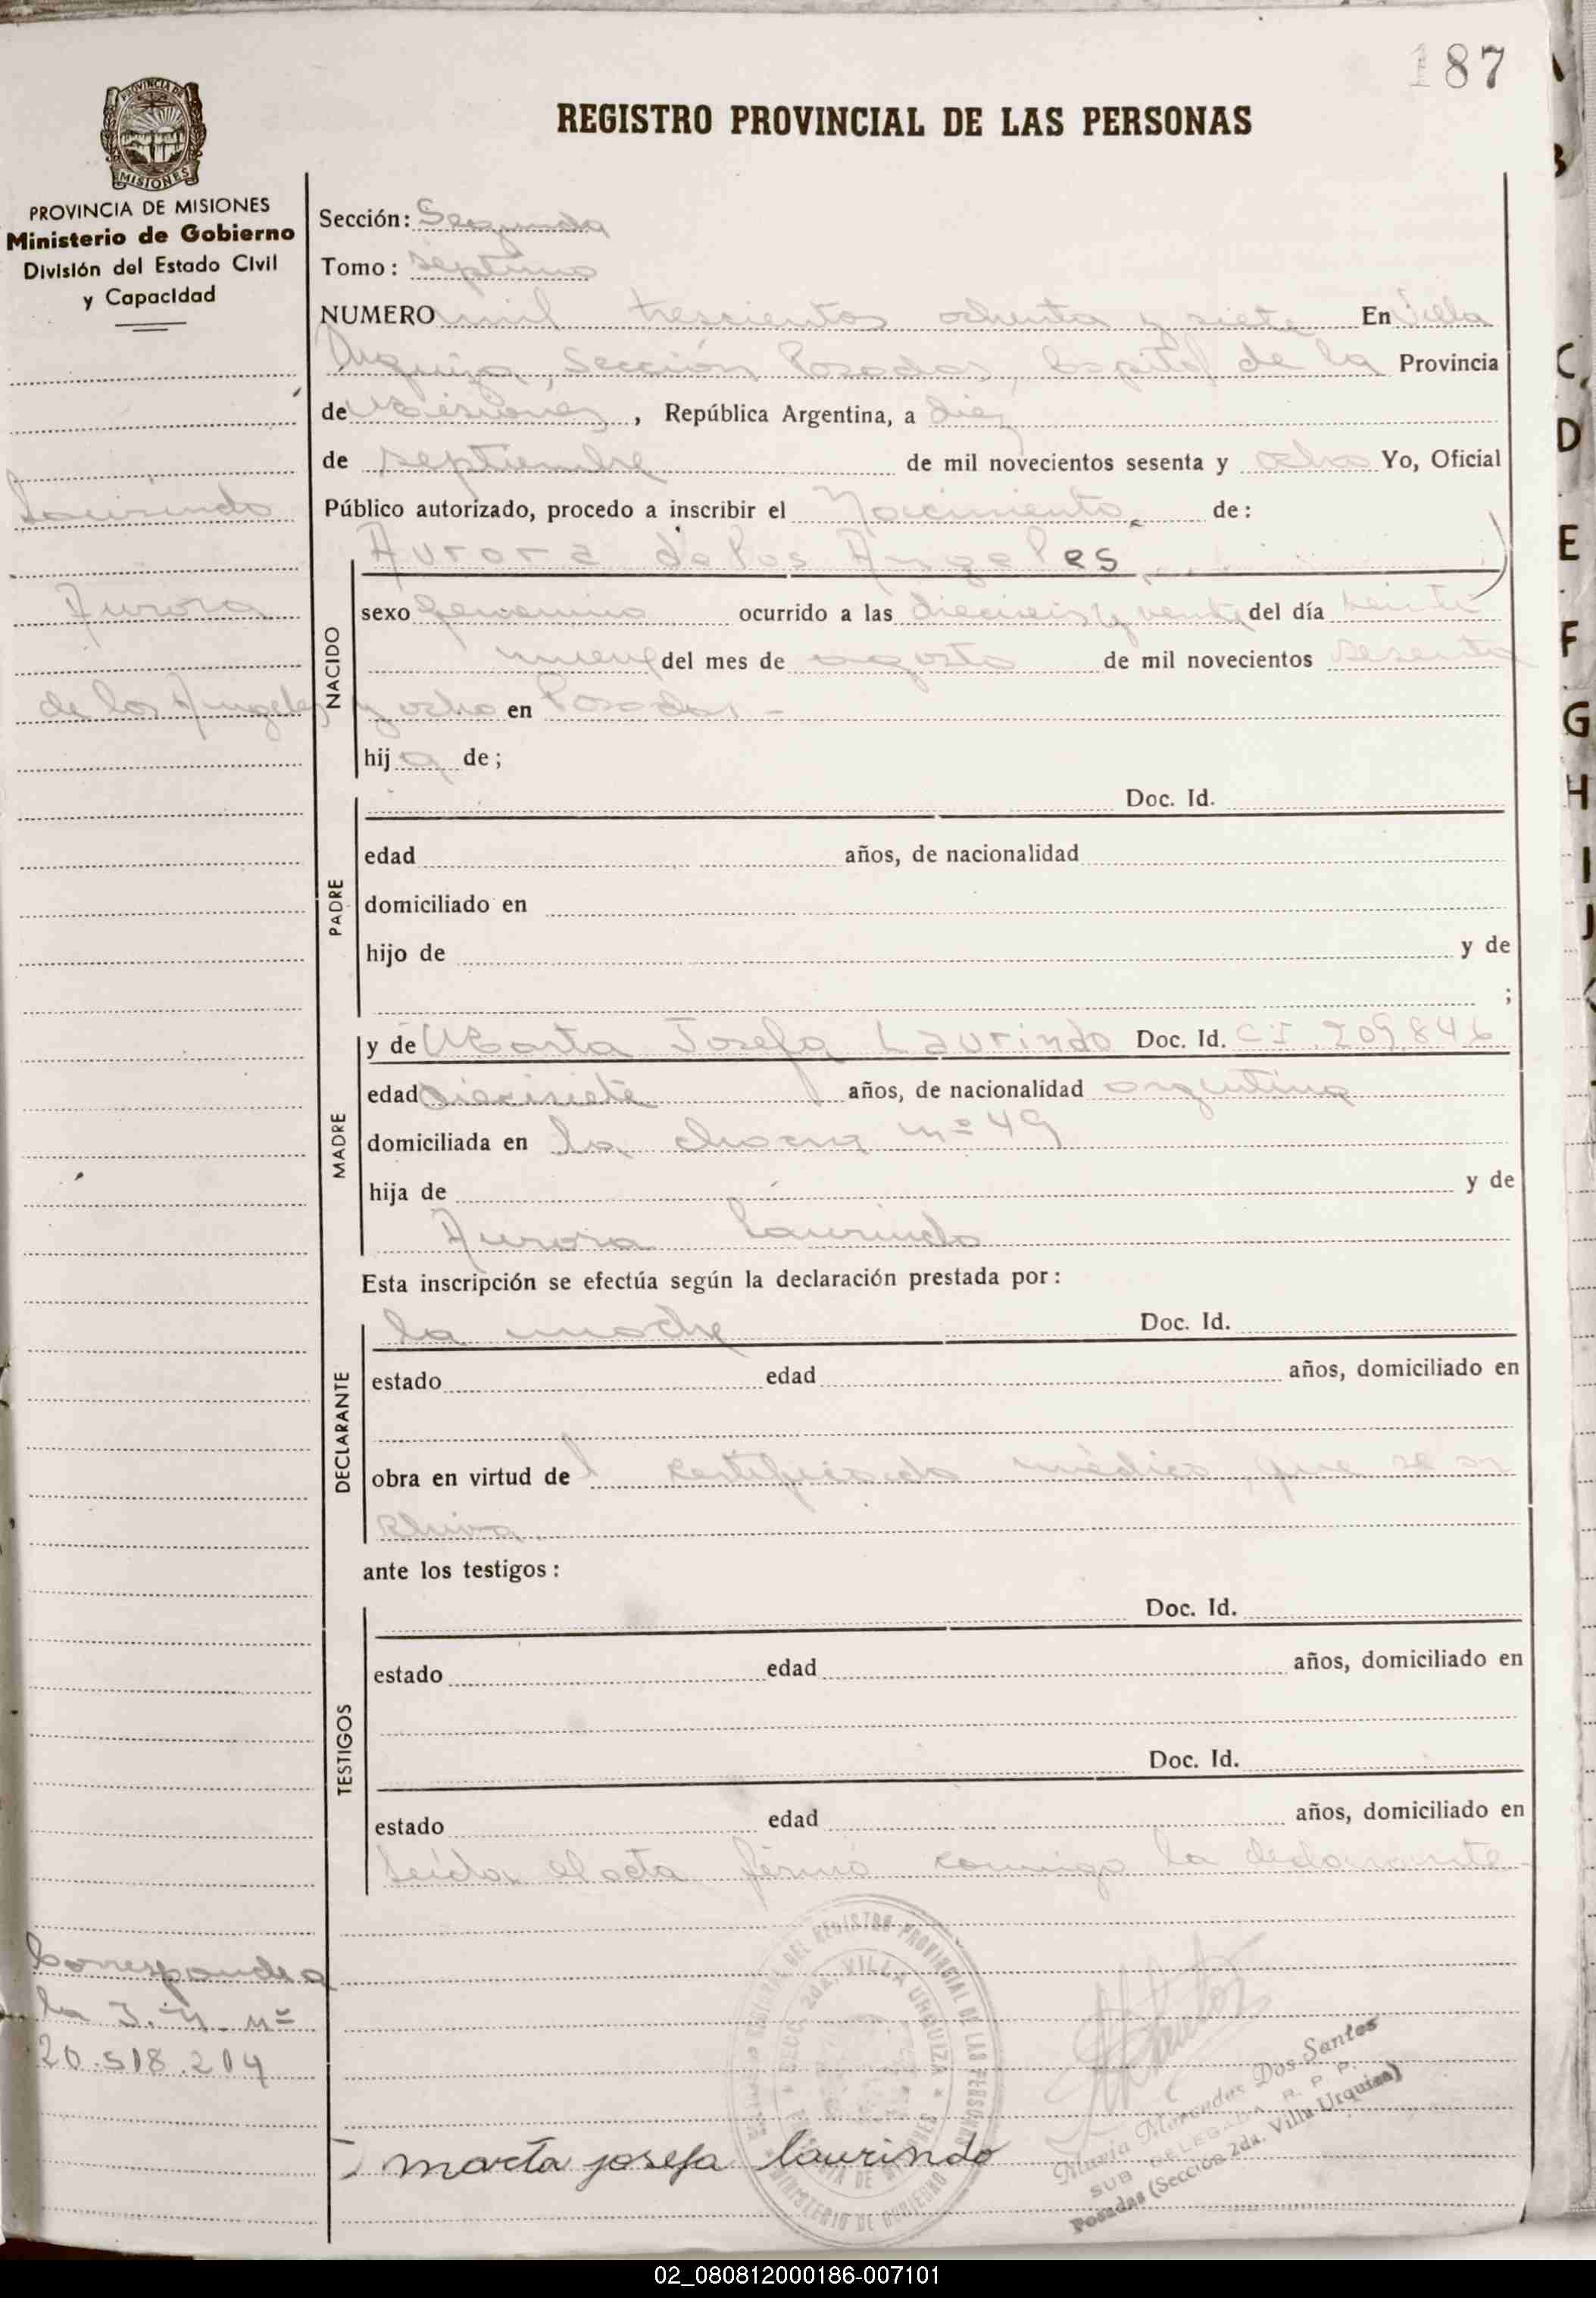 187
REGISTRO PROVINCIAL DE LAS PERSONAS
PROVINCIA DE
MISIONES
PROVINCIA DE MISIONES
Ministerio de Gobierno
División del Estado Civil
y Capacidad
Sección: Segunda
Tomo: Séptimo
NUMERO mil trescientos ochenta y siete En Villa
Urquiza, Sección Posadas, Capital de la Provincia
de Misiones, República Argentina, a diez
de septiembre de mil novecientos sesenta y ocho Yo, Oficial
Público autorizado, procedo a inscribir el Nacimiento de:
Laurindo
Aurora
de los Angeles
Aurora de los Angeles
NACIDO
sexo femenino ocurrido a las dieciseis y veinte del día veinti
nueve del mes de agosto de mil novecientos sesenta
y ocho en Posadas -
hija de;
PADRE
Doc. Id.
edad años, de nacionalidad
domiciliado en
hijo de y de
;
MADRE
y de Marta Josefa Laurindo Doc. Id. C I. 209.846
edad diecisiete años, de nacionalidad argentina
domiciliada en la chacra nº 49
hija de y de
Aurora Laurindo
Esta inscripción se efectúa según la declaración prestada por:
DECLARANTE
la madre Doc. Id.
estado edad años, domiciliado en
obra en virtud del certificado médico, que se ar
chiva.
ante los testigos:
TESTIGOS
Doc. Id.
estado edad años, domiciliado en
Doc. Id.
estado edad años, domiciliado en
Leída el acta firmó conmigo la declarante
Corresponde a
la I. N. nº
20.518.214
DEL REGISTRO PROVINCIAL DE LAS PERSONAS
VILLA URQUIZA
MINISTERIO DE GOBIERNO
Maria Mercedes Dos Santos
SUB DELEGADA R. P. P.
Posadas (Sección 2da. Villa Urquiza)
marta josefa laurindo
A
B
C,
D
E
F
G
H
I
J
02_080812000186-007101